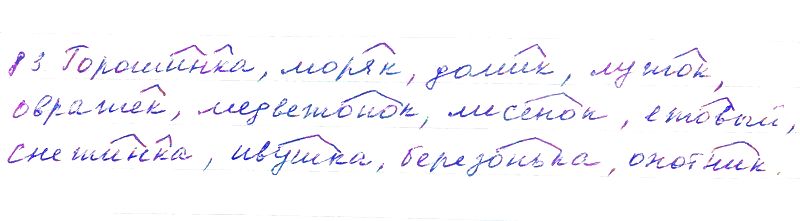 83 Горошинка, моряк, домик, лужок,
овражек, медвежонок, лисёнок, ежовый,
снежинка, ивушка, березонька, охотник.